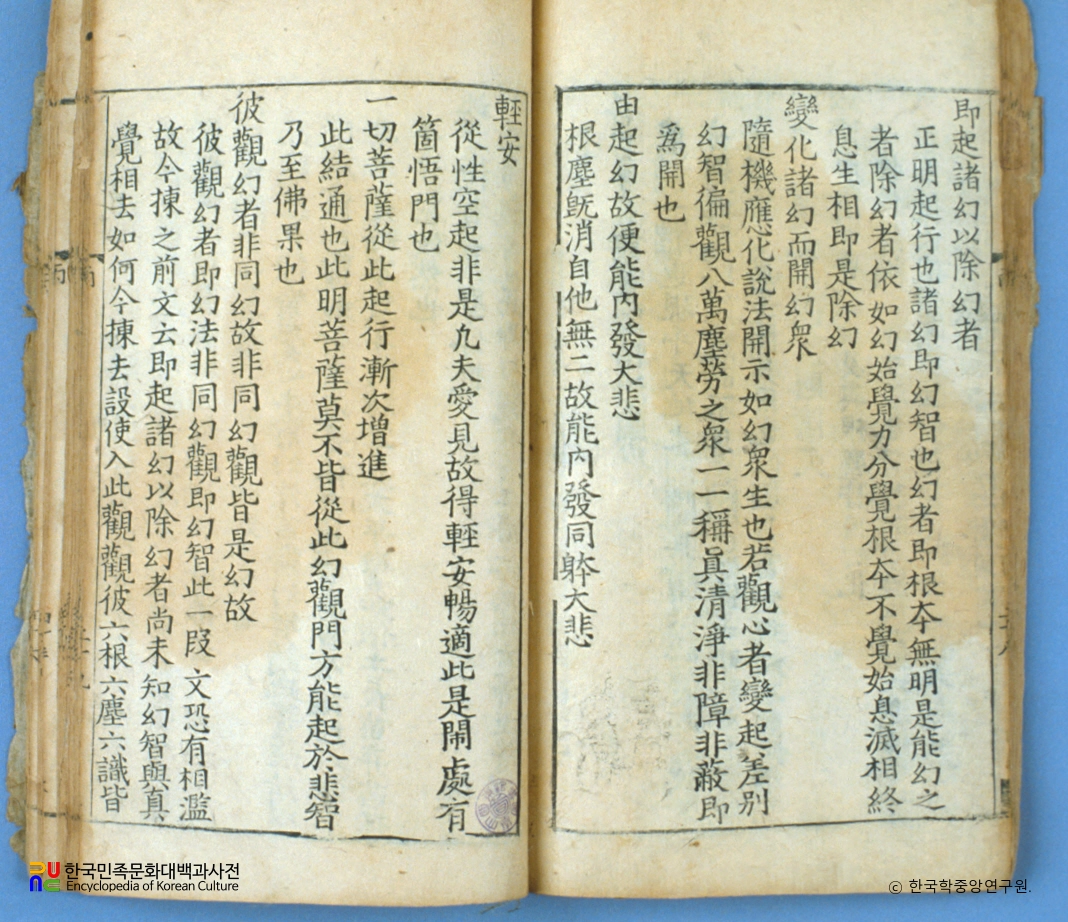 即起諸幻以除幻者
正明起行也諸幻即幻智也幻者即根夲無明是能幻之
者除幻者依如幻始覺力分覺根夲不覺始息滅相終
息生相即是除幻
變化諸幻而開幻衆
隨機應化說法開示如幻衆生也若觀心者變起差別
幻智徧觀八萬塵勞之衆一一稱眞清淨非障非蔽即
爲開也
由起幻故便能內發大悲
根塵旣消自他無二故能內發同躰大悲
輕安
從性空起非是凢夫愛見故得輕安暢適此是閙處有
箇悟門也
一切菩薩從此起行漸次增進
此結通也此明菩薩莫不皆從此幻觀門方能起於悲智
乃至佛果也
彼觀幻者非同幻故非同幻觀皆是幻故
彼觀幻者即幻法非同幻觀即幻智此一段文恐有相濫
故今揀之前文云即起諸幻以除幻者尚未知幻智與真
覺相去如何今揀去設使入此觀觀彼六根六塵六識皆
한국민족문화대백과사전
Encyclopedia of Korean Culture
© 한국학중앙연구원.